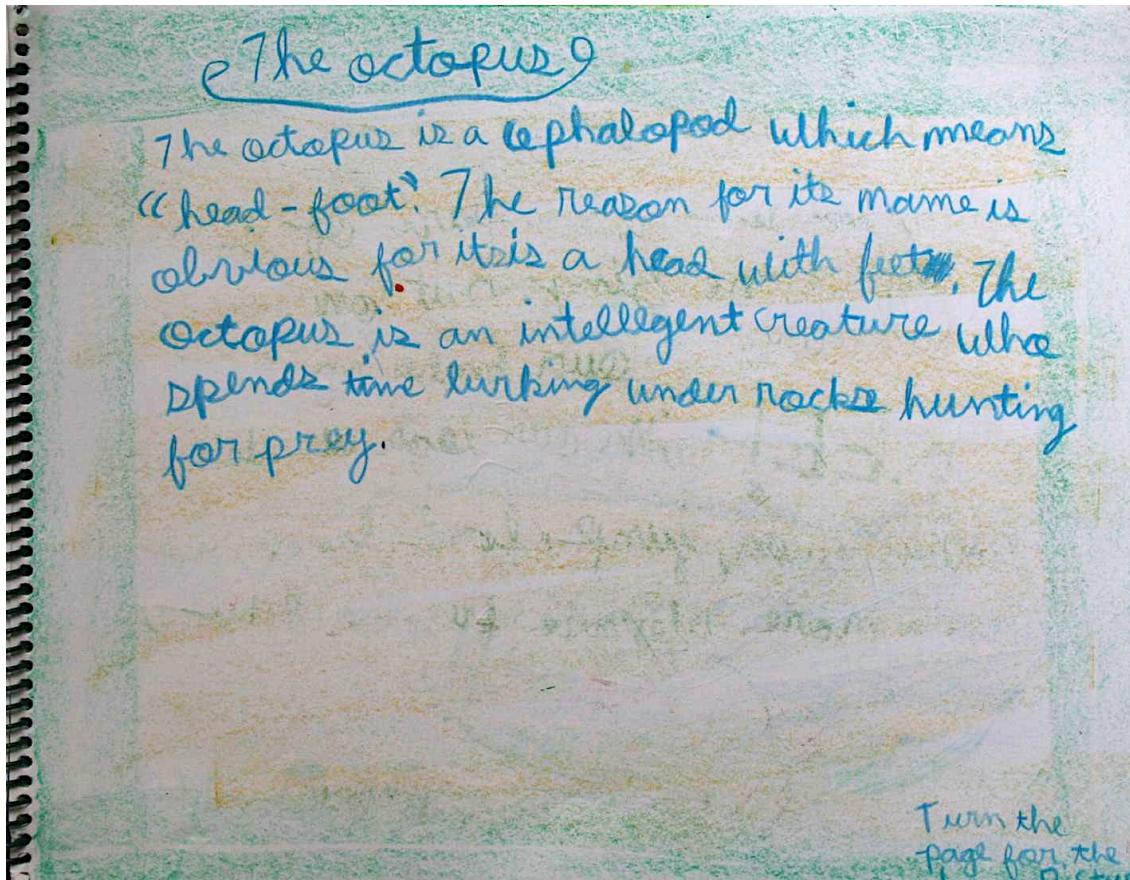 The octopus
The octopus is a cephalopod which means
"head-foot". The reason for its mame is
obvious for itsis a head with feet. The
octopus is an intellegent creature who
spends time lurking under rocks hunting
for prey.
Turn the
page for the